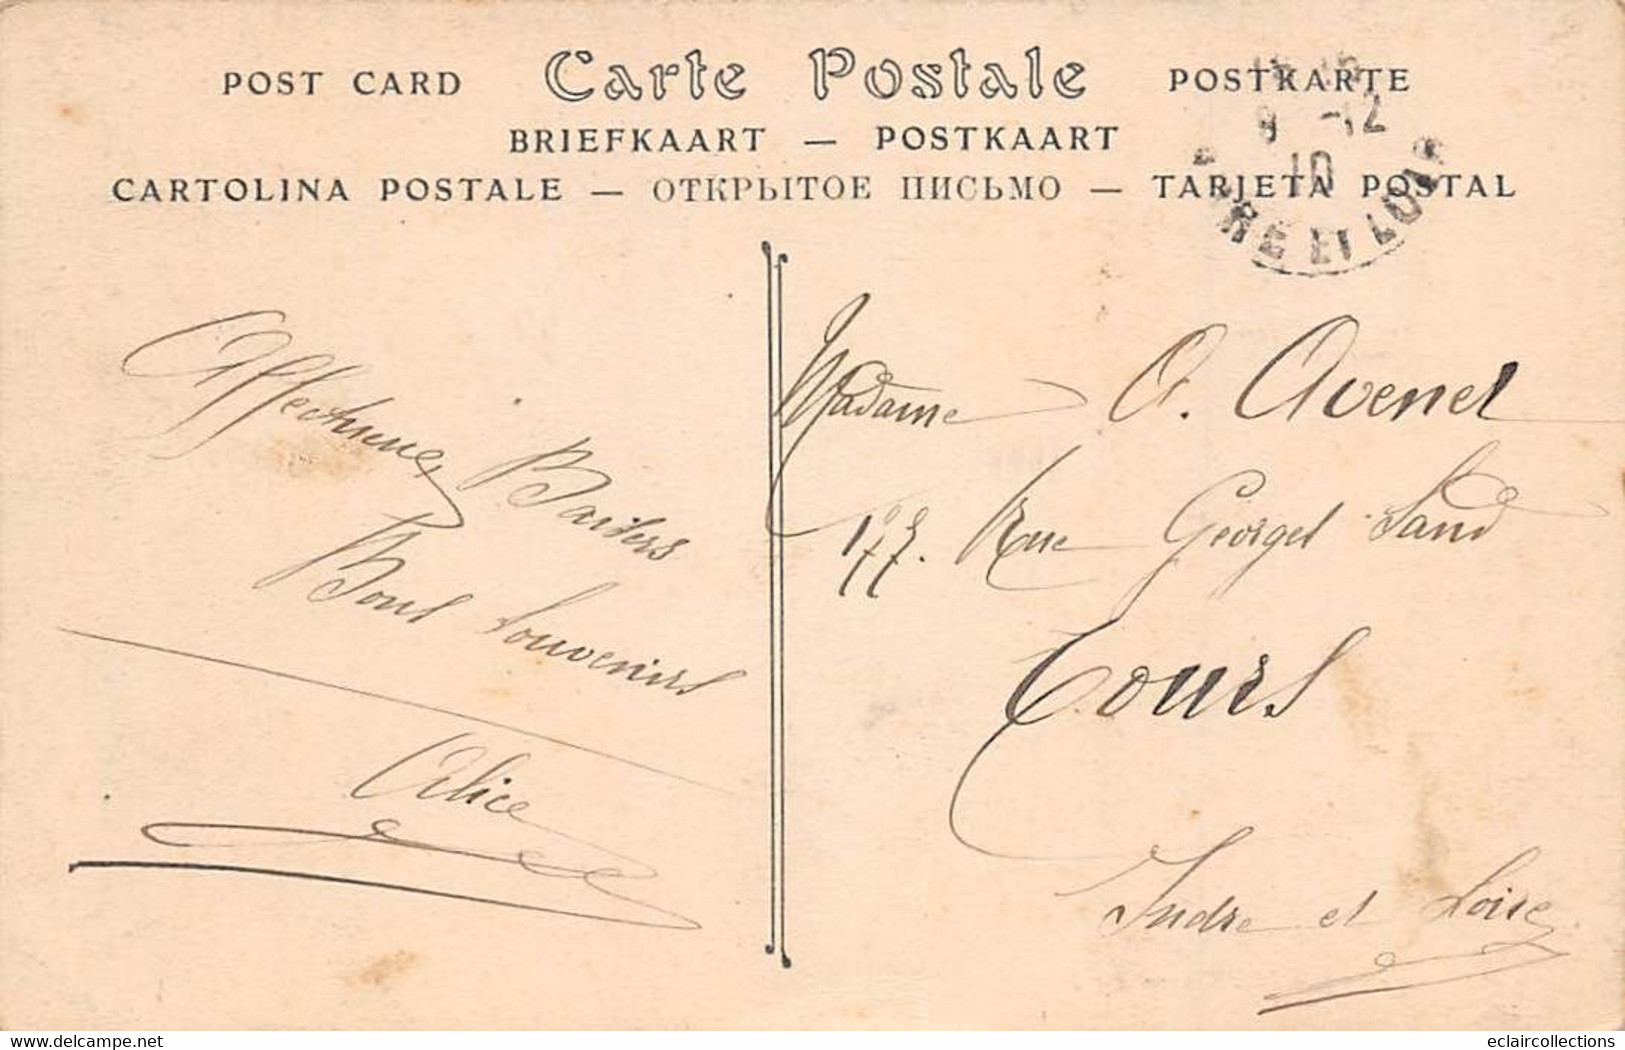 POST CARD Carte Postale POSTKARTE
BRIEFKAART — POSTKAART
CARTOLINA POSTALE — ОТКРЫТОЕ ПИСЬМО — TARJETA POSTAL
9 -12
10
RE ET LOIR
Affectueux Baisers
Bons Souvenirs
Alice
Madame A. Avenel
177. Rue Georges Sand
Tours
Indre et Loire
eclaircollections